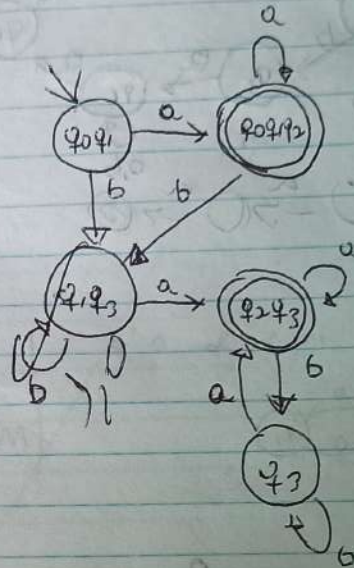 a
q0q1 a q0q1q2
b b
q1q3 a q2q3 a
b a b
q3
b